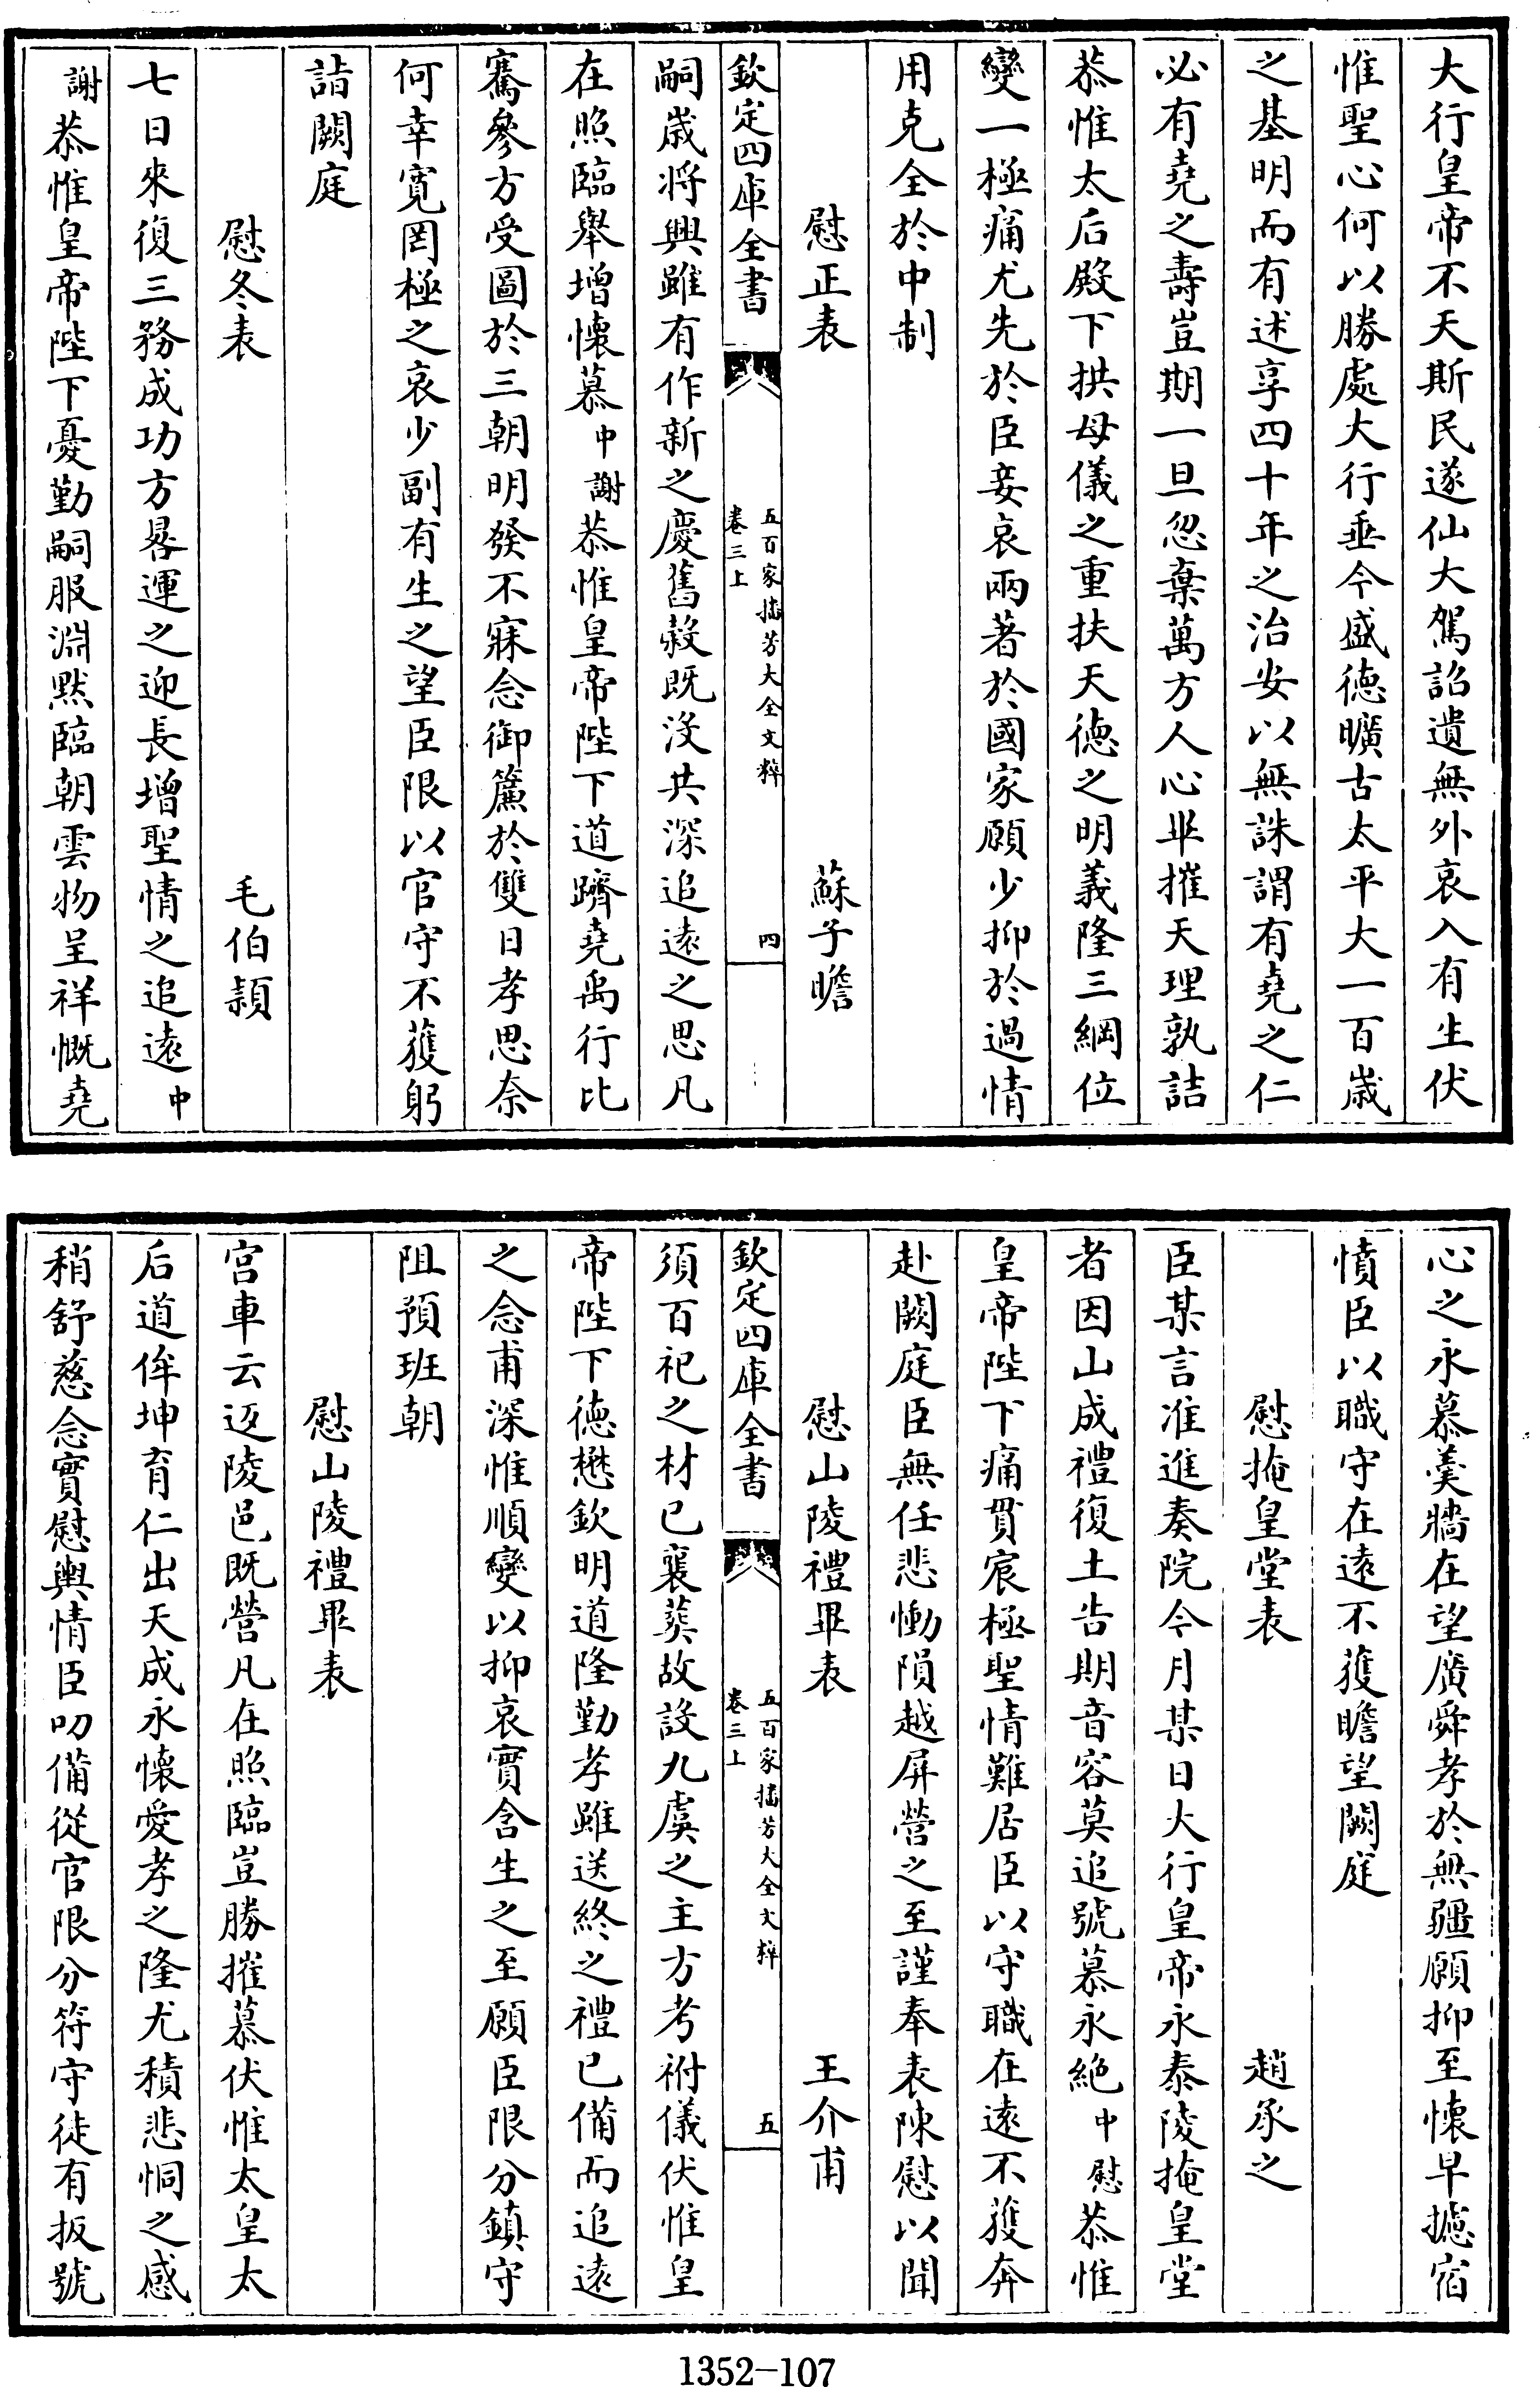 大行皇帝不天斯民遂仙大駕詔遺無外哀入有生伏
惟聖心何以勝處大行垂今盛徳曠古太平大一百歳
之基明而有述享四十年之治安以無誅謂有堯之仁
必有堯之壽豈期一旦忽棄萬方人心畢摧天理孰詰
恭惟太后殿下拱母儀之重扶天徳之明義隆三綱位
變一極痛尤先於臣妾哀兩著於國家願少抑於過情
用克全於中制
慰正表　蘇子瞻
欽定四庫全書　五百家播芳大全文粹　卷三上　四
嗣歳将興雖有作新之慶舊穀既没共深追遠之思凡
在照臨舉増懐慕中謝恭惟皇帝陛下道躋堯禹行比
騫參方受圖於三朝明發不寐念御簾於雙日孝思奈
何幸寛罔極之哀少副有生之望臣限以官守不獲躬
詣闕庭
慰冬表　毛伯頴
七日來復三務成功方晷運之迎長增聖情之追逺中
謝恭惟皇帝陛下憂勤嗣服淵黙臨朝雲物呈祥慨堯
心之永慕羮牆在望廣舜孝於無疆願抑至懐早攄宿
憤臣以職守在逺不獲瞻望闕庭
慰掩皇堂表　趙承之
臣某言准進奏院今月某日大行皇帝永泰陵掩皇堂
者因山成禮復土告期音容莫追號慕永絶中慰恭惟
皇帝陛下痛貫宸極聖情難居臣以守職在逺不獲奔
赴闕庭臣無任悲慟隕越屏營之至謹奉表陳慰以聞
慰山陵禮畢表　王介甫
欽定四庫全書　五百家播芳大全文粹　卷三上　五
須百祀之材已襄葬故設九虞之主方考祔儀伏惟皇
帝陛下徳懋欽明道隆勤孝雖送終之禮已備而追逺
之念甫深惟順變以抑哀實含生之至願臣限分鎮守
阻預班朝
慰山陵禮畢表
宫車云邁陵邑既營凡在照臨豈勝摧慕伏惟太皇太
后道侔坤育仁出天成永懐愛孝之隆尤積悲恫之感
稍舒慈念實慰輿情臣叨備從官限分符守徒有扳號
1352-107